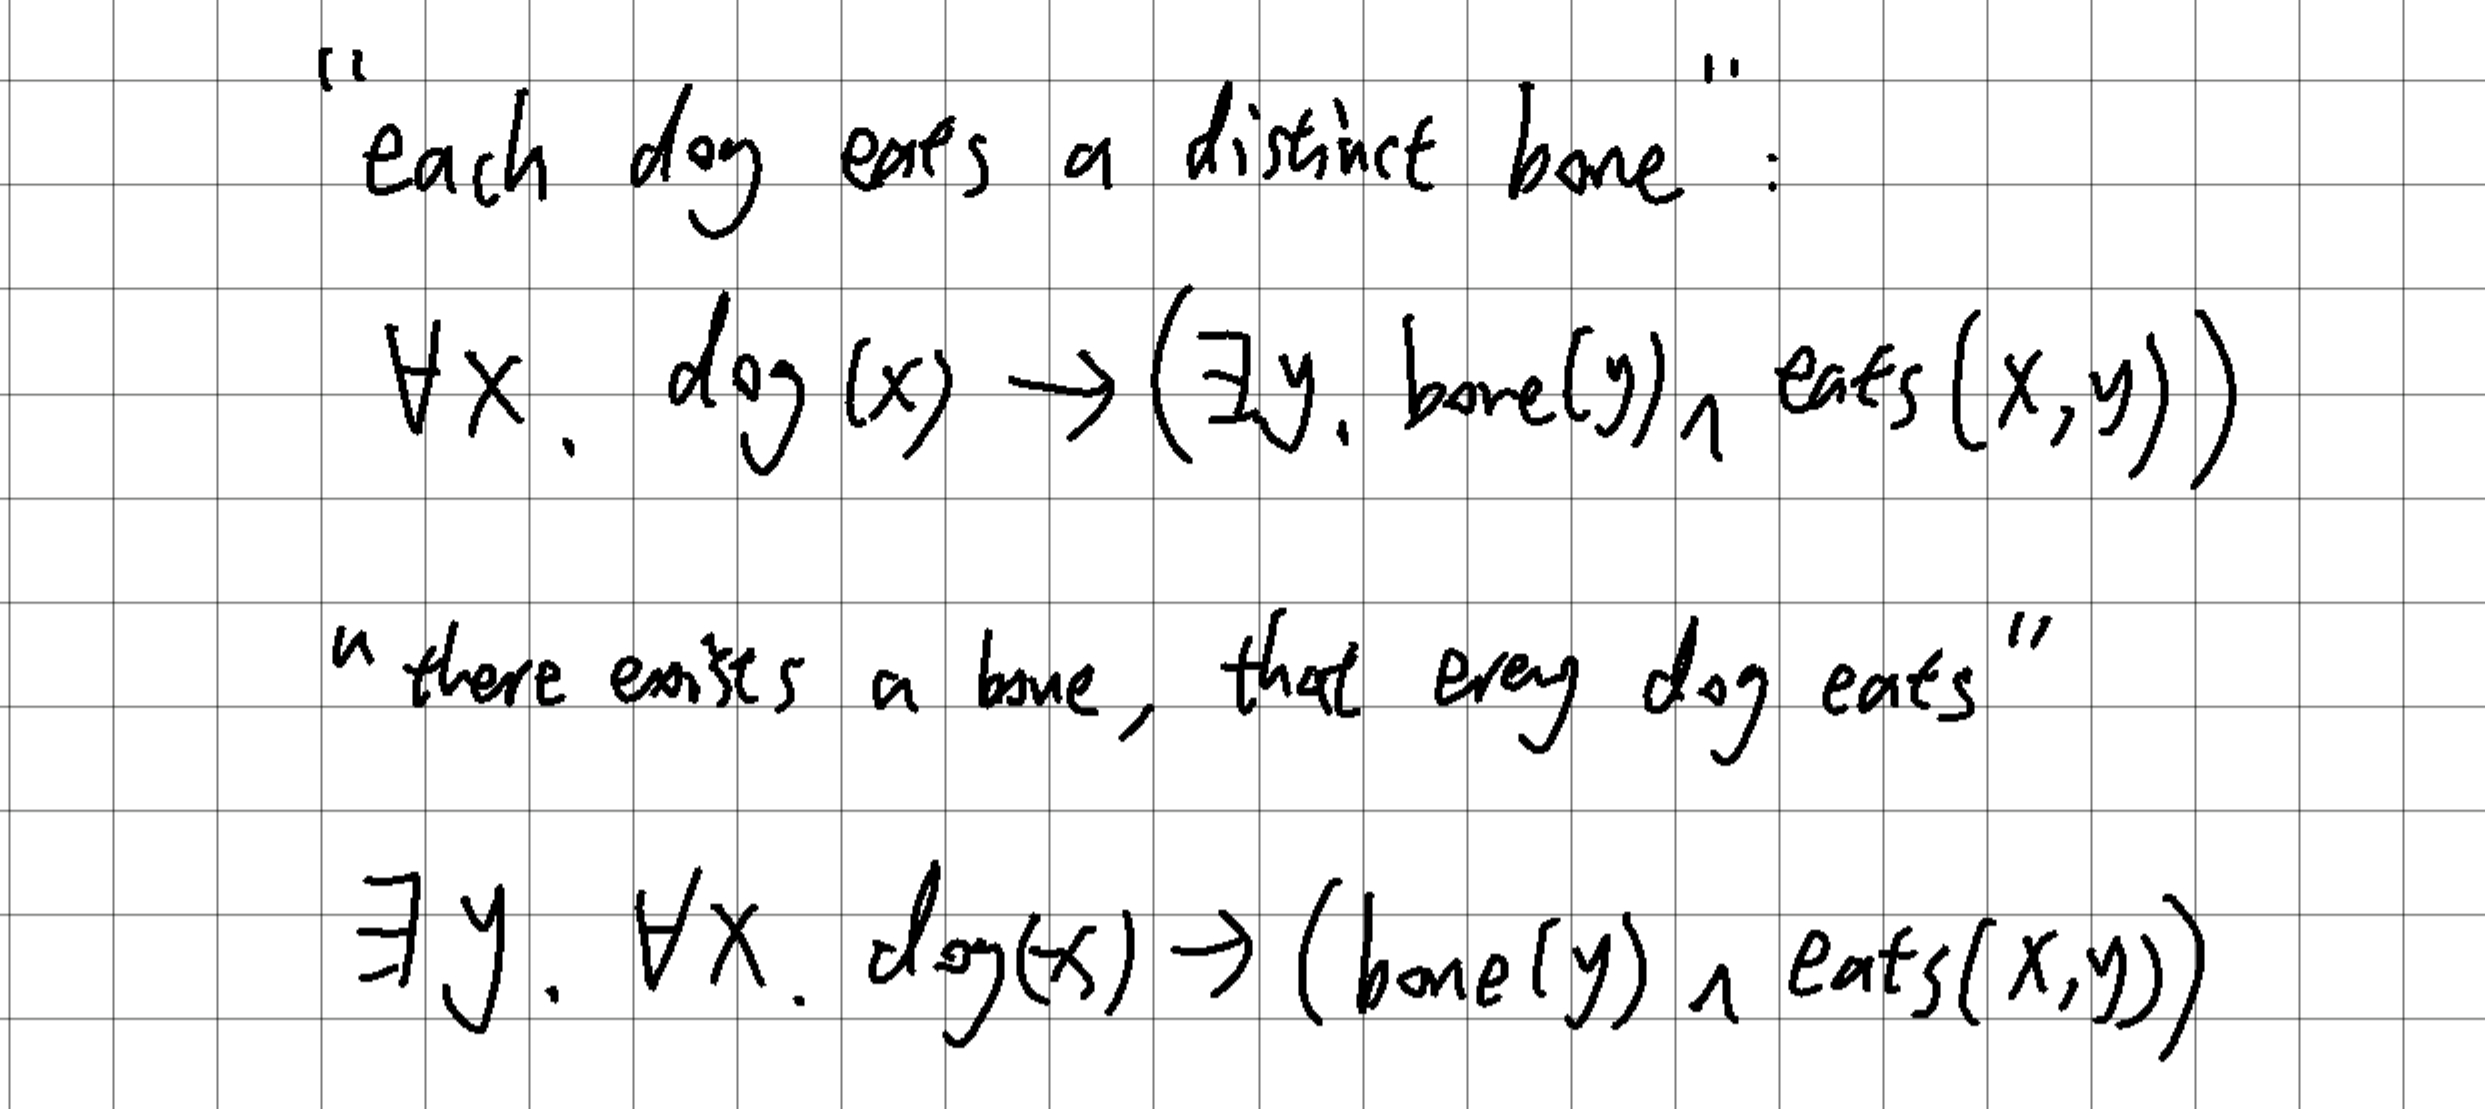 "each dog eats a distinct bone":
∀x. dog(x) → (∃y. bone(y) ∧ eats(x,y))
"there exists a bone, that every dog eats"
∃y. ∀x. dog(x) → (bone(y) ∧ eats(x,y))